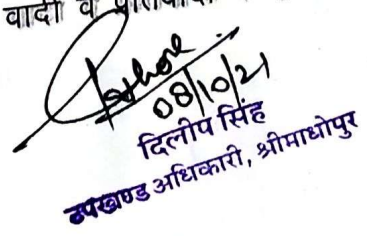 वादी व
08/10/21
दिलीप सिंह
उपखण्ड अधिकारी, श्रीमाधोपुर